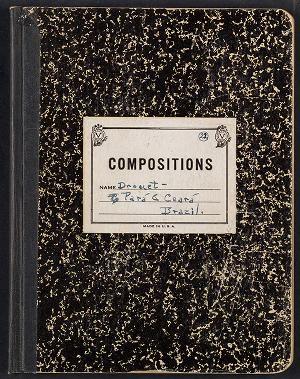 23
COMPOSITIONS
NAME Drouet -
Pará & Ceará
Brazil.
MADE IN U.S.A.